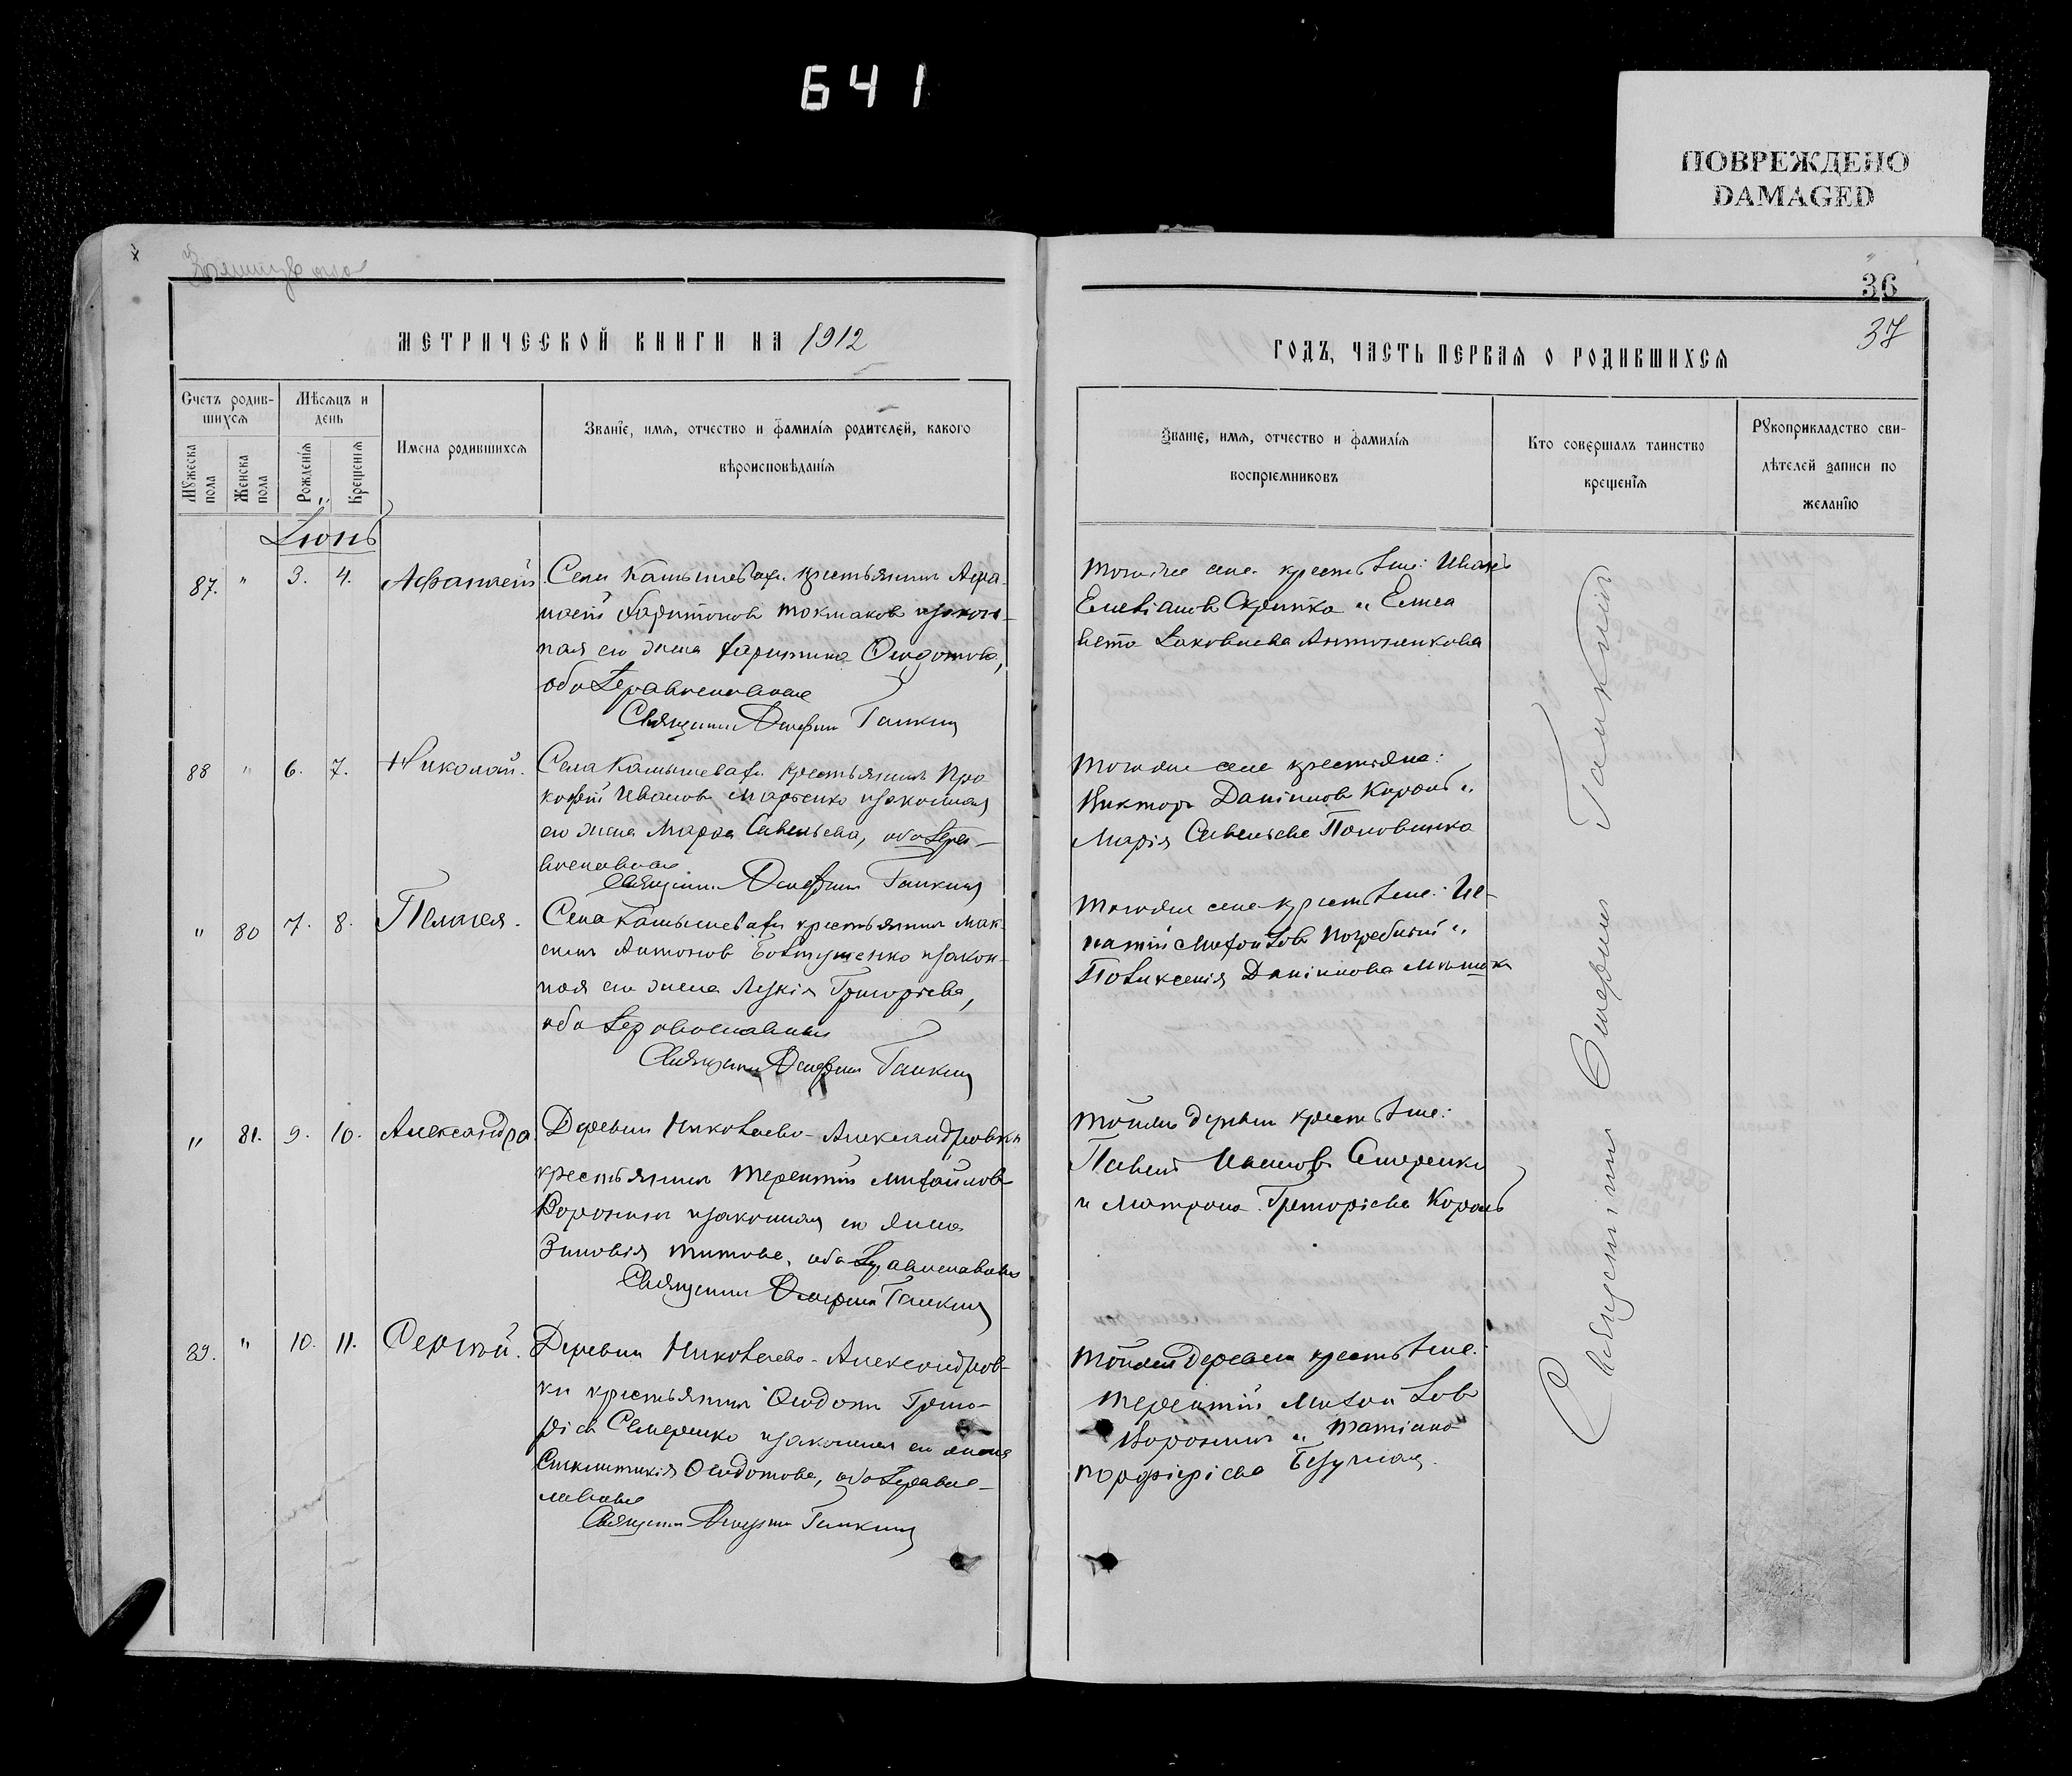 641
ПОВРЕЖДЕНО
DAMAGED
36
37
МЕТРИЧЕСКОЙ КНИГИ НА 1912
ГОДЪ, ЧАСТЬ ПЕРВАЯ О РОДИВШИХСЯ
Счетъ родив-
шихся
Мѣсяцъ и
день
Мужеска
пола
Женска
пола
Рожденія
Крещенія
Имена родившихся
Званіе, имя, отчество и фамилія родителей, какого
вѣроисповѣданія
Званіе, имя, отчество и фамилія
воспріемниковъ
Кто совершалъ таинство
крещенія
Рукоприкладство сви-
дѣтелей записи по
желанію
Іюнь
87. " 3. 4. Афанасій
Села Камышевахи крестьянинъ Афа-
насій Харитоновъ Токмаковъ и закон-
ная его жена Харитина Ѳеодотова,
оба православные
Священник Галкин
Того же села крестьяне: Иванъ
Скрипка и Елиса
вета Яковлева Антоненкова
88 " 6. 7. Николай.
Села Камышевахи крестьянинъ Про
кофій Ивановъ Марченко и законная
его жена Марфа Савельева, оба пра-
вославные
Священник Галкин
Того же села крестьяне:
Викторъ Даніиловъ Король и
Марія Савельева Половинка
" 80 7. 8. Пелагея.
Села Камышевахи крестьянинъ Мак-
симъ Антоновъ Евтушенко и закон-
ная его жена Лукія Григорьева,
оба православные
Священник Галкин
Того же села крестьяне: Иг-
натій Михайловъ Погребной и
Поликсенія Даніилова
" 81. 9. 10. Александра
Деревни Николаево-Александровки
крестьянинъ Терентій Михайловъ
Воронинъ и законная его жена
Зиновія Титова, оба православные
Священник Галкин
Той же деревни крестьяне:
Павелъ Ивановъ Семеренко
и Матрона Григорьева Король
89. " 10. 11. Сергѣй.
Деревни Николаево-Александров-
ки крестьянинъ Ѳеодотъ Григо-
рьевъ Семеренко и законная его жена
Синклитикія Ѳеодотова, оба правос-
лавные
Священник Галкин
Той же деревни крестьяне:
Терентій Михайловъ
Воронинъ и Татіана
Порфирьева Безуглая.
Священникъ Галкинъ